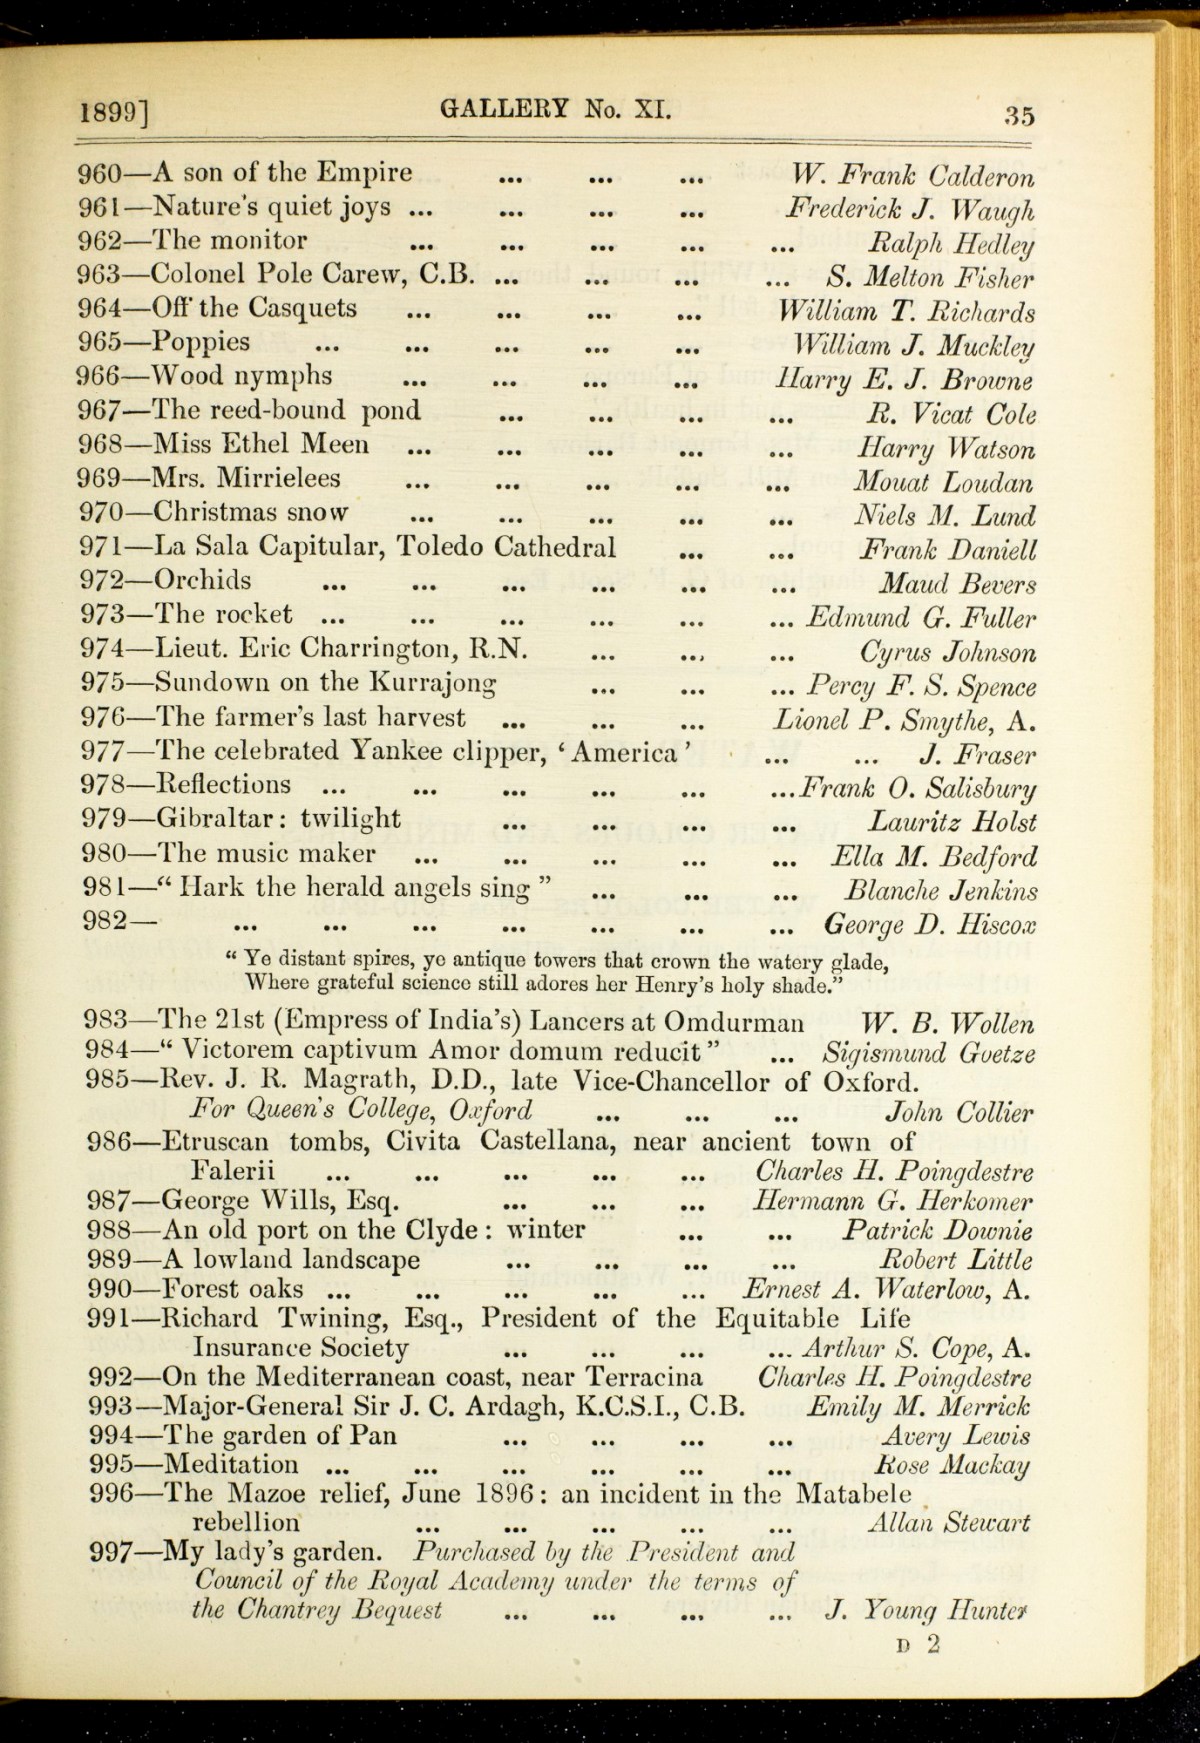 1899] GALLERY No. XI. 35
960—A son of the Empire ... ... ... W. Frank Calderon
961—Nature's quiet joys ... ... ... ... Frederick J. Waugh
962—The monitor ... ... ... ... ... Ralph Hedley
963—Colonel Pole Carew, C.B. ... ... ... ... S. Melton Fisher
964—Off the Casquets ... ... ... ... William T. Richards
965—Poppies ... ... ... ... ... William J. Muckley
966—Wood nymphs ... ... ... ... Harry E. J. Browne
967—The reed-bound pond ... ... ... ... R. Vicat Cole
968—Miss Ethel Meen ... ... ... ... ... Harry Watson
969—Mrs. Mirrielees ... ... ... ... ... Mouat Loudan
970—Christmas snow ... ... ... ... ... Niels M. Lund
971—La Sala Capitular, Toledo Cathedral ... ... Frank Daniell
972—Orchids ... ... ... ... ... ... Maud Bevers
973—The rocket ... ... ... ... ... ... Edmund G. Fuller
974—Lieut. Eric Charrington, R.N. ... ... ... Cyrus Johnson
975—Sundown on the Kurrajong ... ... ... Percy F. S. Spence
976—The farmer's last harvest ... ... ... Lionel P. Smythe, A.
977—The celebrated Yankee clipper, ‘America’ ... ... J. Fraser
978—Reflections ... ... ... ... ... ...Frank O. Salisbury
979—Gibraltar: twilight ... ... ... ... Lauritz Holst
980—The music maker ... ... ... ... ... Ella M. Bedford
981—“Hark the herald angels sing” ... ... ... Blanche Jenkins
982— ... ... ... ... ... ... ... George D. Hiscox
“Ye distant spires, ye antique towers that crown the watery glade,
Where grateful science still adores her Henry's holy shade.”
983—The 21st (Empress of India's) Lancers at Omdurman W. B. Wollen
984—“Victorem captivum Amor domum reducit” ... Sigismund Goetze
985—Rev. J. R. Magrath, D.D., late Vice-Chancellor of Oxford.
For Queen's College, Oxford ... ... ... John Collier
986—Etruscan tombs, Civita Castellana, near ancient town of
Falerii ... ... ... ... ... Charles H. Poingdestre
987—George Wills, Esq. ... ... ... Hermann G. Herkomer
988—An old port on the Clyde: winter ... ... Patrick Downie
989—A lowland landscape ... ... ... ... Robert Little
990—Forest oaks ... ... ... ... ... Ernest A. Waterlow, A.
991—Richard Twining, Esq., President of the Equitable Life
Insurance Society ... ... ... ... Arthur S. Cope, A.
992—On the Mediterranean coast, near Terracina Charles H. Poingdestre
993—Major-General Sir J. C. Ardagh, K.C.S.I., C.B. Emily M. Merrick
994—The garden of Pan ... ... ... ... Avery Lewis
995—Meditation ... ... ... ... ... ... Rose Mackay
996—The Mazoe relief, June 1896: an incident in the Matabele
rebellion ... ... ... ... ... Allan Stewart
997—My lady's garden. Purchased by the President and
Council of the Royal Academy under the terms of
the Chantrey Bequest ... ... ... ... J. Young Hunter
D 2